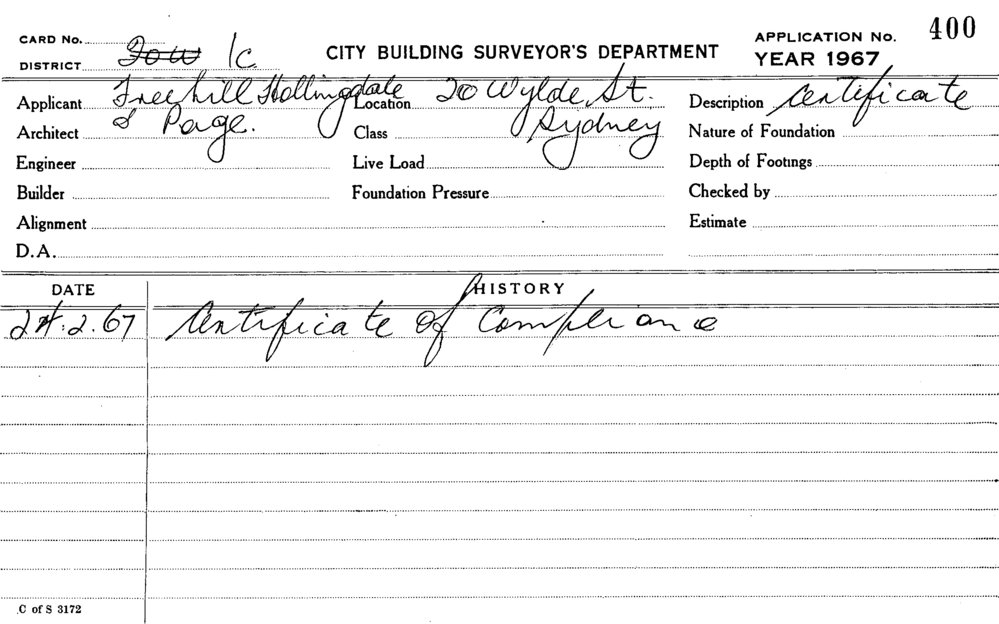 CARD No.
400
DISTRICT 1c
CITY BUILDING SURVEYOR'S DEPARTMENT
APPLICATION No.
YEAR 1967
Applicant Freehill Hollingdale
Location 20 Wylde St.
Description Certificate
Architect & Page.
Class Sydney
Nature of Foundation
Engineer
Live Load
Depth of Footings
Builder
Foundation Pressure
Checked by
Alignment
Estimate
D.A.
DATE
HISTORY
.2.67 Certificate of Compliance
C of S 3172